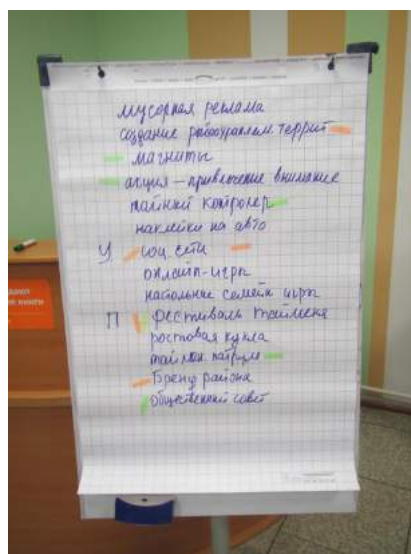 мусорная реклама
создание территт
магниты
акция – привлечение внимание
тайный контролер
наклейки на авто
У соц. сети
онлайн-игры
настольные семейн игры
П фестиваль тайменя
ростовая кукла
патруль
Бренд района
общественный совет